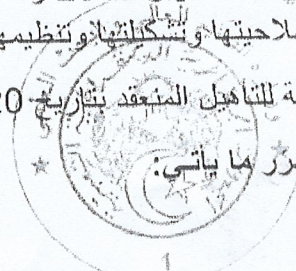 لاحيتها وتشكيلتها وتنظيمه
ة للتأهيل المنعقد بتاريخ 20
رر ما يأتي: